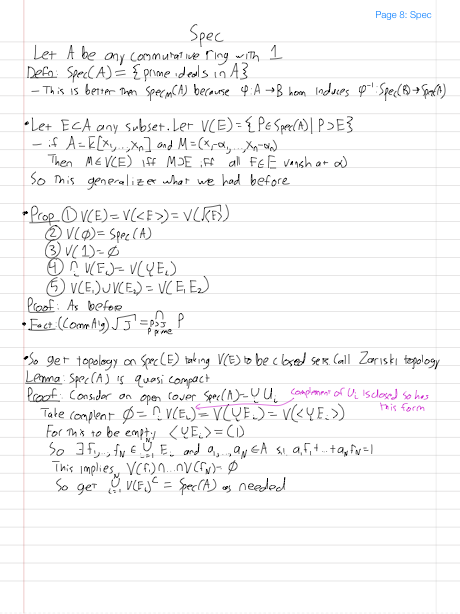 Page 8: Spec
Spec
Let A be any commutative ring with 1
Defn: Spec(A) = {prime ideals in A}
- This is better then Specm(A) because φ: A→B hom induces φ⁻¹: Spec(B)→Spec(A)
• Let E⊂A any subset. Let V(E) = {P∈Spec(A) | P⊃E}
- if A = k[x₁,...,xₙ] and M = (x₁-α₁,...,xₙ-αₙ)
Then M∈V(E) iff M⊃E iff all f∈E vanish at α)
So this generalizes what we had before
• Prop ① V(E) = V(<E>) = V(√<E>)
② V(∅) = Spec(A)
③ V(1) = ∅
④ ∩ᵢ V(Eᵢ) = V(∪ᵢ Eᵢ)
⑤ V(E₁)∪V(E₂) = V(E₁E₂)
Proof: As before
• Fact (Comm Alg) √J = ∩ P
P⊃J
P prime
• So get topology on Spec(E) taking V(E) to be closed sets. Call Zariski topology
Lemma: Spec(A) is quasi compact
Proof: Consider an open cover Spec(A) = ∪ᵢ Uᵢ
complement of Uᵢ is closed so has
this form
Take complent ∅ = ∩ᵢ V(Eᵢ) = V(∪ᵢ Eᵢ) = V(<∪Eᵢ>)
For this to be empty <∪Eᵢ> = (1)
So ∃ f₁,...,f_N ∈ ∪ᵢ₌₁ᴺ Eᵢ and a₁,...,a_N ∈A s.t. a₁f₁+...+a_N f_N = 1
This implies V(f₁)∩...∩V(f_N) = ∅
So get ∪ᵢ₌₁ᴺ V(Eᵢ)ᶜ = Spec(A) as needed